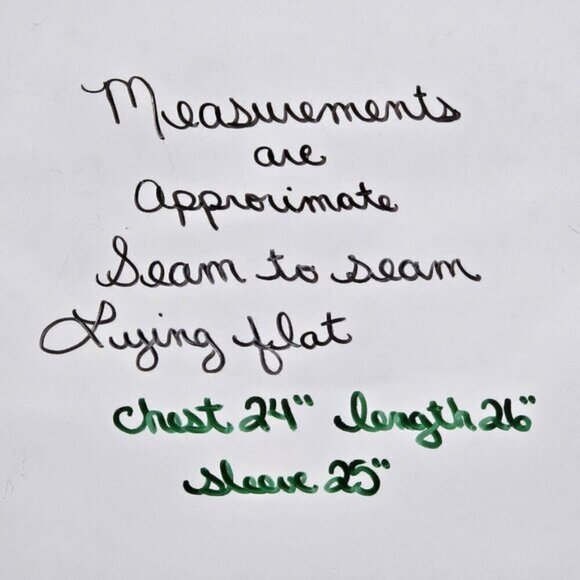 Measurements
are
Approximate
Seam to seam
Lying flat
chest 24" length 26"
sleeve 25"